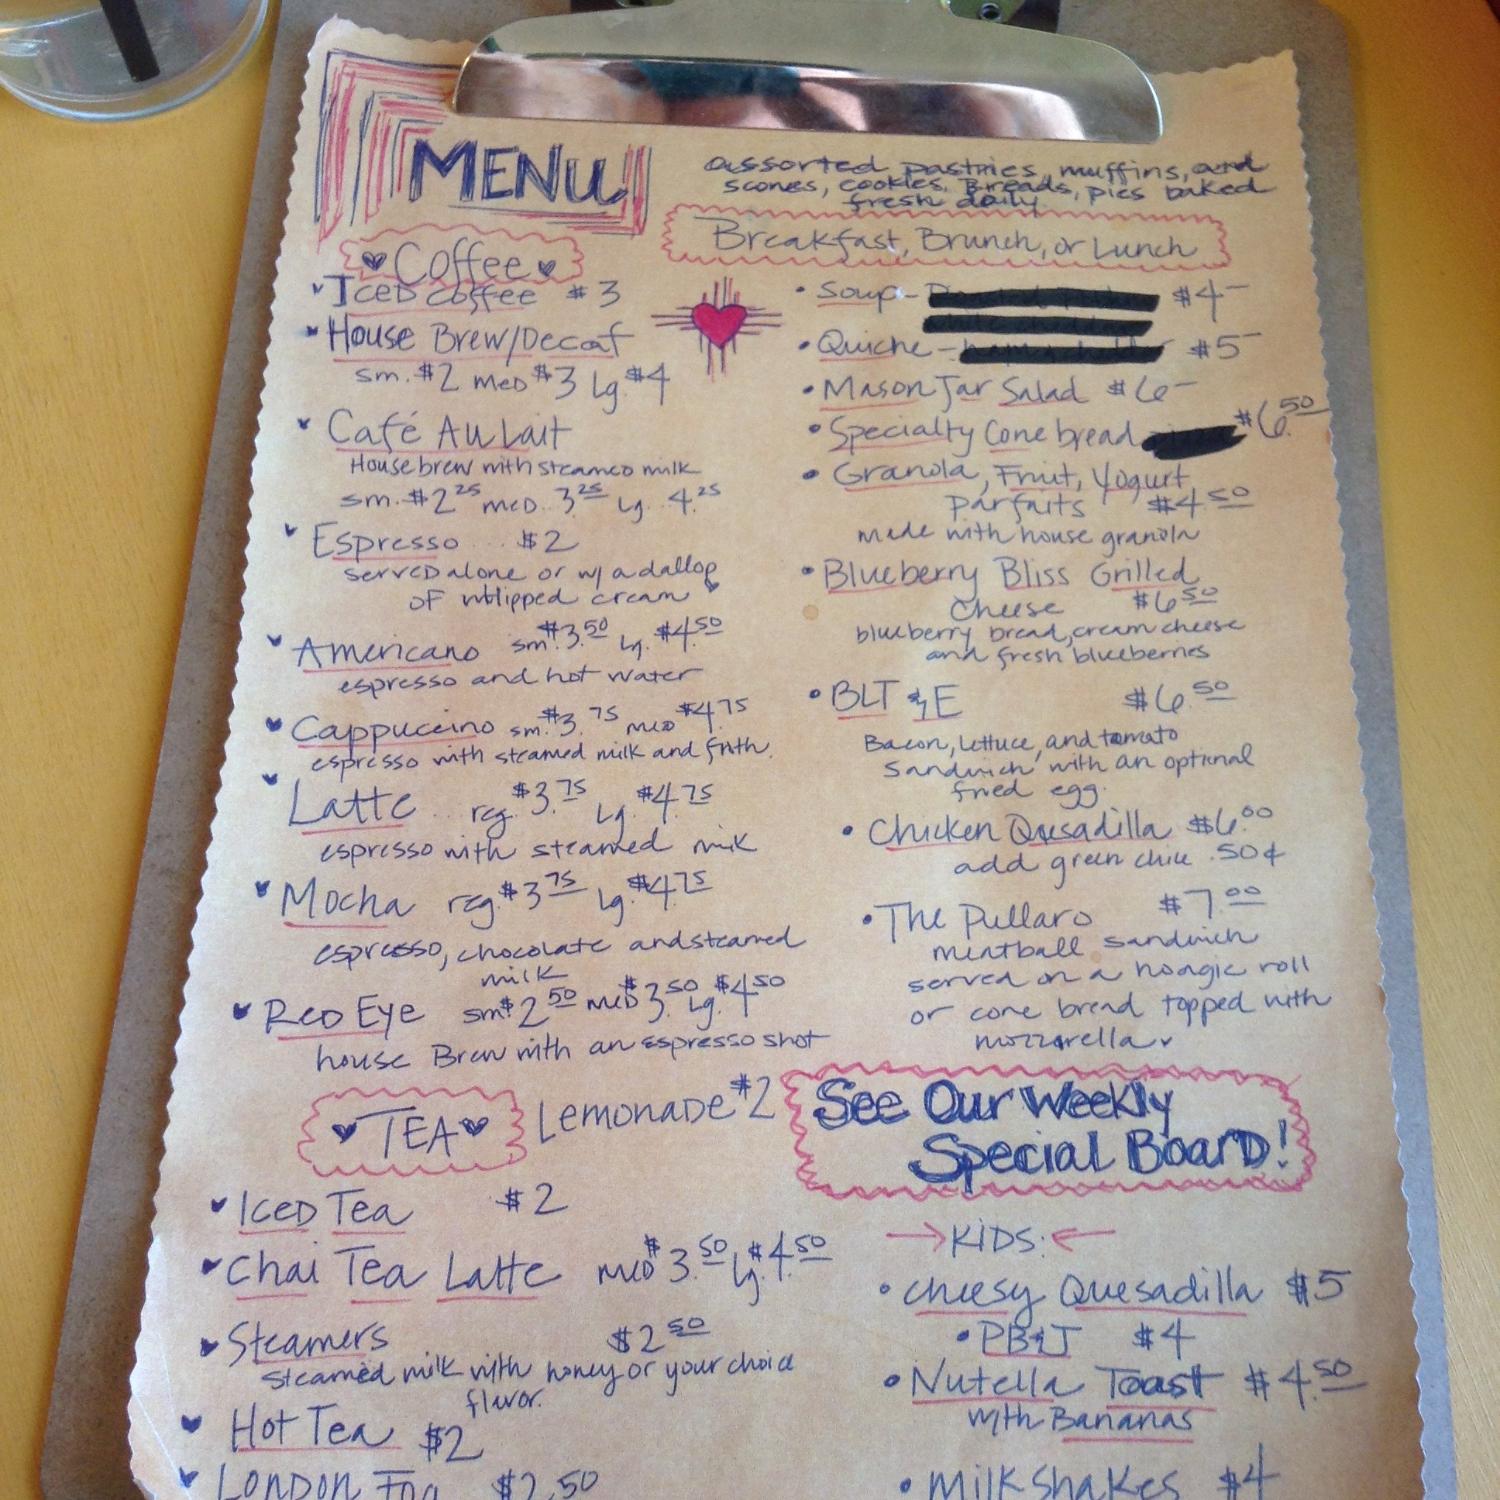 MENU
Coffee
Iced Coffee $3
House Brew/Decaf
sm. $2 med $3 Lg. $4
Café Au Lait
House brew with steamed milk
sm. $2.25 med. 3.25 Lg. 4.25
Espresso $2
served alone or w/ a dallop
of whipped cream
Americano sm. $3.50 Lg. $4.50
espresso and hot water
Cappuccino sm. $3.75 med $4.75
espresso with steamed milk and froth.
Latte reg. $3.75 Lg. $4.75
espresso with steamed milk
Mocha reg. $3.75 Lg. $4.75
espresso, chocolate and steamed
milk
Red Eye sm $2.50 med $3.50 Lg. $4.50
house Brew with an espresso shot
TEA
Lemonade $2
Iced Tea $2
Chai Tea Latte med $3.50 Lg. $4.50
Steamers $2.50
steamed milk with honey or your choice
flavor.
Hot Tea $2
London Fog $2.50
assorted pastries, muffins, and
scones, cookies, Breads, pies baked
fresh daily.
Breakfast, Brunch, or Lunch
• Soup - $4-
• Quiche - $5-
• Mason Jar Salad $6-
• Specialty Cone bread $6.50
• Granola, Fruit, Yogurt
Parfaits $4.50
made with house granola
• Blueberry Bliss Grilled
Cheese $6.50
blueberry bread, cream cheese
and fresh blueberries
• BLT & E $6.50
Bacon, lettuce, and tomato
sandwich with an optional
fried egg.
• Chicken Quesadilla $6.00
add green chile .50¢
• The Pullaro $7.00
meatball sandwich
served on a hoagie roll
or cone bread topped with
mozzarella
See Our Weekly
Special Board!
KIDS:
• cheesy Quesadilla $5
• PB&J $4
• Nutella Toast $4.50
with Bananas
• Milkshakes $4